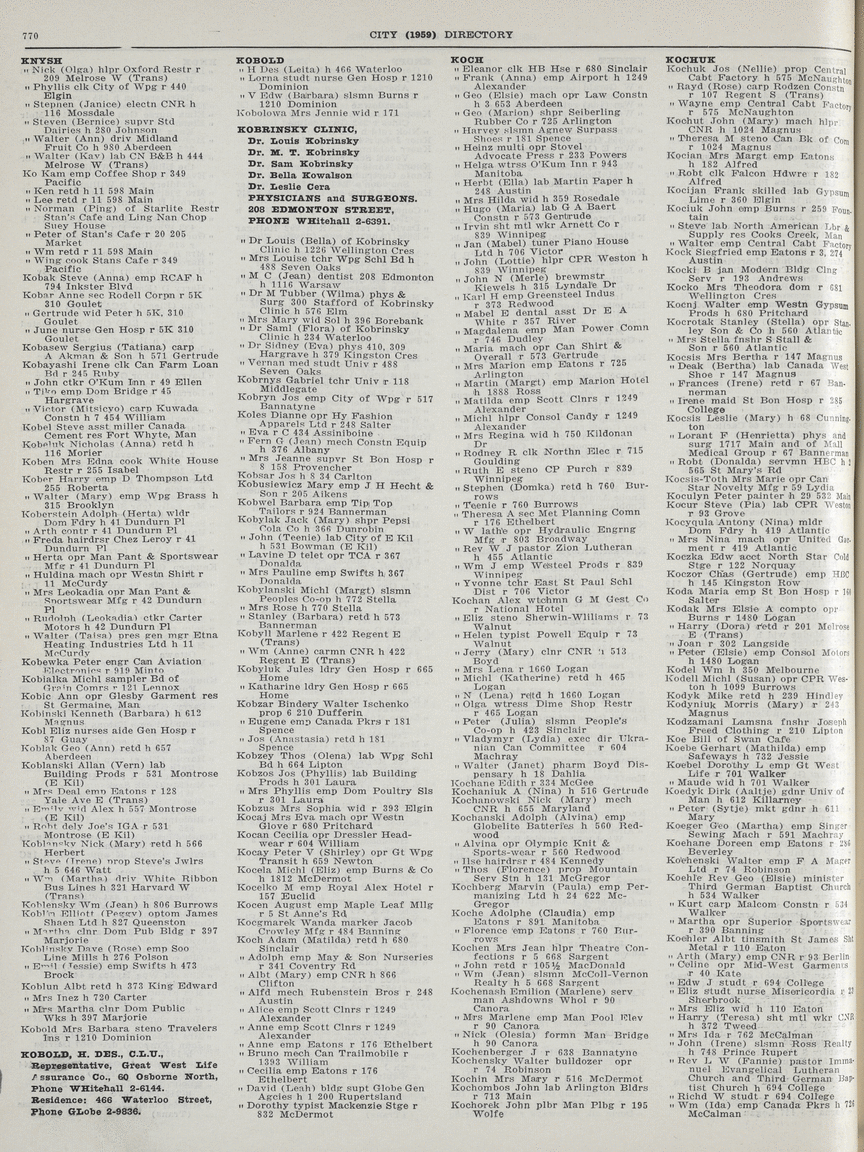 770
CITY (1959) DIRECTORY
KNYSH
" Nick (Olga) hlpr Oxford Restr r
209 Melrose W (Trans)
" Phyllis clk City of Wpg r 440
Elgin
" Stephen (Janice) electn CNR h
116 Mossdale
" Steven (Bernice) supvr Std
Dairies h 280 Johnson
" Walter (Ann) driv Midland
Fruit Co h 980 Aberdeen
" Walter (Kay) lab CN B&B h 444
Melrose W (Trans)
Ko Kam emp Coffee Shop r 349
Pacific
" Ken retd h 11 598 Main
" Lee retd r 11 598 Main
" Norman (Ping) of Starlite Restr
Stan's Cafe and Ling Nan Chop
Suey House
" Peter of Stan's Cafe r 20 205
Market
" Wm retd r 11 598 Main
" Wing cook Stans Cafe r 349
Pacific
Kobak Steve (Anna) emp RCAF h
794 Inkster Blvd
Kobar Anne sec Rodell Corpn r 5K
310 Goulet
" Gertrude wid Peter h 5K, 310
Goulet
" June nurse Gen Hosp r 5K 310
Goulet
Kobasew Sergius (Tatiana) carp
A Akman & Son h 571 Gertrude
Kobayashi Irene clk Can Farm Loan
Bd r 245 Ruby
" John ctkr O'Kum Inn r 49 Ellen
emp Dom Bridge r 45
Hargrave
" Victor (Mitsicyo) carp Kuwada
Constn h 7 454 William
Kobel Steve asst miller Canada
Cement res Fort Whyte, Man
Kobelnk Nicholas (Anna) retd h
116 Morier
Koben Mrs Edna cook White House
Restr r 255 Isabel
Kober Harry emp D Thompson Ltd
255 Roberta
" Walter (Mary) emp Wpg Brass h
315 Brooklyn
Koberstein Adolph (Herta) wldr
Dom Fdry h 41 Dundurn Pl
" Arth contr r 41 Dundurn Pl
" Freda hairdrsr Chez Leroy r 41
Dundurn Pl
" Herta opr Man Pant & Sportswear
Mfg r 41 Dundurn Pl
" Huldina mach opr Westn Shirt r
11 McCurdy
" Mrs Leokadia opr Man Pant &
Sportswear Mfg r 42 Dundurn
Pl
" Rudolph (Leokadia) ctkr Carter
Motors h 42 Dundurn Pl
" Walter (Taisa) pres gen mgr Etna
Heating Industries Ltd h 11
McCurdy
Kobewka Peter engr Can Aviation
Electronics r 919 Minto
Kobialka Michl sampler Bd of
Grain Comrs r 121 Lennox
Kobic Ann opr Glesby Garment res
St Germaine, Man
Kobinski Kenneth (Barbara) h 612
Magnus
Kobl Eliz nurses aide Gen Hosp r
87 Guay
Koblak Geo (Ann) retd h 657
Aberdeen
Koblanski Allan (Vern) lab
Building Prods r 531 Montrose
(E Kil)
" Mrs Deal emp Eatons r 128
Yale Ave E (Trans)
" Emily wid Alex h 557 Montrose
(E Kil)
" Robt dely Joe's IGA r 531
Montrose (E Kil)
Koblansky Nick (Mary) retd h 566
Herbert
" Steve (Irene) prop Steve's Jwlrs
h 5 646 Watt
" Wm (Martha) driv White Ribbon
Bus Lines h 321 Harvard W
(Trans)
Koblensky Wm (Jean) h 806 Burrows
Koblin Elliott (Peggy) optom James
Shaen Ltd h 827 Queenston
" Martha clnr Dom Pub Bldg r 397
Marjorie
Koblinsky Dave (Rose) emp Soo
Line Mills h 276 Polson
" Emil (Jessie) emp Swifts h 473
Brock
Koblun Albt retd h 373 King Edward
" Mrs Inez h 720 Carter
" Mrs Martha clnr Dom Public
Wks h 397 Marjorie
Kobold Mrs Barbara steno Travelers
Ins r 1210 Dominion
KOBOLD, H. DES., C.L.U.,
Representative, Great West Life
Assurance Co., 60 Osborne North,
Phone WHitehall 2-6144.
Residence: 466 Waterloo Street,
Phone GLobe 2-9836.
KOBOLD
" H Des (Leita) h 466 Waterloo
" Lorna studt nurse Gen Hosp r 1210
Dominion
" V Edw (Barbara) slsmn Burns r
1210 Dominion
Kobolowa Mrs Jennie wid r 171
KOBRINSKY CLINIC,
Dr. Louis Kobrinsky
Dr. M. T. Kobrinsky
Dr. Sam Kobrinsky
Dr. Bella Kowalson
Dr. Leslie Cera
PHYSICIANS and SURGEONS.
208 EDMONTON STREET,
PHONE WHitehall 2-6391.
" Dr Louis (Bella) of Kobrinsky
Clinic h 1226 Wellington Cres
" Mrs Louise tchr Wpg Schl Bd h
488 Seven Oaks
" M C (Jean) dentist 208 Edmonton
h 1116 Warsaw
" Dr M Tubber (Wilma) phys &
Surg 300 Stafford of Kobrinsky
Clinic h 576 Elm
" Mrs Mary wid Sol h 396 Borebank
" Dr Saml (Flora) of Kobrinsky
Clinic h 234 Waterloo
" Dr Sidney (Eva) phys 410, 309
Hargrave h 379 Kingston Cres
" Vernan med studt Univ r 488
Seven Oaks
Kobrnys Gabriel tchr Univ r 118
Middlegate
Kobryn Jos emp City of Wpg r 517
Bannatyne
Koles Dianne opr Hy Fashion
Apparels Ltd r 248 Salter
" Eva r C 434 Assiniboine
" Fern G (Jean) mech Constn Equip
h 376 Albany
" Mrs Jeanne supvr St Bon Hosp r
8 158 Provencher
Kobsar Jos h 8 34 Carlton
Kobusiewicz Mary emp J H Hecht &
Son r 205 Aikens
Kobwel Barbara emp Tip Top
Tailors r 924 Bannerman
Kobylak Jack (Mary) shpr Pepsi
Cola Co h 366 Dunrobin
" John (Teenie) lab City of E Kil
h 531 Bowman (E Kil)
" Lavine D telet opr TCA r 367
Donalda
" Mrs Pauline emp Swifts h 367
Donalda
Kobylanski Michl (Margt) slsmn
Peoples Co-op h 772 Stella
" Mrs Rose h 770 Stella
" Stanley (Barbara) retd h 573
Bannerman
Kobyll Marlene r 422 Regent E
(Trans)
" Wm (Anne) carmn CNR h 422
Regent E (Trans)
Kobyluk Jules ldry Gen Hosp r 665
Home
" Katharine ldry Gen Hosp r 665
Home
Kobzar Bindery Walter Ischenko
prop 6 210 Dufferin
" Eugene emp Canada Pkrs r 181
Spence
" Jos (Anastasia) retd h 181
Spence
Kobzey Thos (Olena) lab Wpg Schl
Bd h 664 Lipton
Kobzos Jos (Phyllis) lab Building
Prods h 301 Laura
" Mrs Phyllis emp Dom Poultry Sls
r 301 Laura
Kobzus Mrs Sophia wid r 393 Elgin
Kocaj Mrs Eva mach opr Westn
Glove r 680 Pritchard
Kocan Cecilia opr Dressler Head-
wear r 604 William
Kocay Peter V (Shirley) opr Gt Wpg
Transit h 659 Newton
Kocela Michl (Eliz) emp Burns & Co
h 1812 McDermot
Kocelko M emp Royal Alex Hotel r
157 Euclid
Kocen August emp Maple Leaf Millg
r 5 St Anne's Rd
Kocgmarek Wanda marker Jacob
Crowley Mfg r 484 Banning
Koch Adam (Matilda) retd h 680
Sinclair
" Adolph emp May & Son Nurseries
r 341 Coventry Rd
" Albt (Mary) emp CNR h 866
Clifton
" Alfd mach Rubenstein Bros r 248
Austin
" Alice emp Scott Clnrs r 1249
Alexander
" Anne emp Scott Clnrs r 1249
Alexander
" Anne emp Eatons r 176 Ethelbert
" Bruno mech Can Trailmobile r
1393 William
" Cecilia emp Eatons r 176
Ethelbert
" David (Leah) bldg supt Globe Gen
Agcies h 1 200 Rupertsland
" Dorothy typist Mackenzie Stge r
832 McDermot
KOCH
" Eleanor clk HB Hse r 680 Sinclair
" Frank (Anna) emp Airport h 1249
Alexander
" Geo (Elsie) mach opr Law Constn
h 3 653 Aberdeen
" Geo (Marion) shpr Seiberling
Rubber Co r 725 Arlington
" Harvey slsmn Agnew Surpass
Shoes r 181 Spence
" Heinz multi opr Stovel
Advocate Press r 233 Powers
" Helga wtrss O'Kum Inn r 943
Manitoba
" Herbt (Ella) lab Martin Paper h
248 Austin
" Mrs Hilda wid h 359 Rosedale
" Hugo (Maria) lab G A Baert
Constn r 573 Gertrude
" Irvin sht mtl wkr Arnett Co r
839 Winnipeg
" Jan (Mabel) tuner Piano House
Ltd h 706 Victor
" John (Lottie) hlpr CPR Weston h
839 Winnipeg
" John N (Merle) brewmstr
Kiewels h 315 Lyndale Dr
" Karl H emp Greensteel Indus
r 373 Redwood
" Mabel E dental asst Dr E A
White r 357 River
" Magdalena emp Man Power Comn
r 746 Dudley
" Maria mach opr Can Shirt &
Overall r 573 Gertrude
" Mrs Marion emp Eatons r 725
Arlington
" Martin (Margt) emp Marion Hotel
h 1888 Ross
" Matilda emp Scott Clnrs r 1249
Alexander
" Michl hlpr Consol Candy r 1249
Alexander
" Mrs Regina wid h 750 Kildonan
Dr
" Rodney R clk Northn Elec r 715
Goulding
" Ruth E steno CP Purch r 839
Winnipeg
" Stephen (Domka) retd h 760 Bur-
rows
" Teenie r 760 Burrows
" Theresa A sec Met Planning Comn
r 176 Ethelbert
" W lathe opr Hydraulic Engrng
Mfg r 803 Broadway
" Rev W J pastor Zion Lutheran
h 455 Atlantic
" Wm J emp Westeel Prods r 839
Winnipeg
" Yvonne tchr East St Paul Schl
Dist r 706 Victor
Kochan Alex wtchmn G M Gest Co
r National Hotel
" Eliz steno Sherwin-Williams r 73
Walnut
" Helen typist Powell Equip r 73
Walnut
" Jerry (Mary) clnr CNR h 513
Boyd
" Mrs Lena r 1660 Logan
" Michl (Katherine) retd h 465
Logan
" N (Lena) retd h 1660 Logan
" Olga wtress Dime Shop Restr
r 465 Logan
" Peter (Julia) slsmn People's
Co-op h 423 Sinclair
" Vladymyr (Lydia) exec dir Ukra-
nian Can Committee r 604
Machray
" Walter (Janet) pharm Boyd Dis-
pensary h 18 Dahlia
Kochane Edith r 334 McGee
Kochaniuk A (Nina) h 516 Gertrude
Kochanowski Nick (Mary) mech
CNR h 655 Maryland
Kochanski Adolph (Alvina) emp
Globelite Batteries h 560 Red-
wood
" Alvina opr Olympic Knit &
Sports-wear r 560 Redwood
" Ilse hairdrsr r 484 Kennedy
" Thos (Florence) prop Mountain
Serv Stn h 131 McGregor
Kochberg Marvin (Paula) emp Per-
manizing Ltd h 24 622 Mc-
Gregor
Koche Adolphe (Claudia) emp
Eatons r 891 Manitoba
" Florence emp Eatons r 760 Bur-
rows
Kochen Mrs Jean hlpr Theatre Con-
fections r 5 668 Sargent
" John retd r 105½ MacDonald
" Wm (Jean) slsmn McColl-Vernon
Realty h 5 668 Sargent
Kochenash Emilien (Marlene) serv
man Ashdowns Whol r 90
Canora
" Mrs Marlene emp Man Pool Elev
r 90 Canora
" Nick (Olesia) formn Man Bridge
h 90 Canora
Kochenberger J r 638 Bannatyne
Kochensky Walter bulldozer opr
r 74 Robinson
Kochin Mrs Mary r 516 McDermot
Kochombos John lab Arlington Bldrs
r 713 Main
Kochorek John plbr Man Plbg r 195
Wolfe
KOCHUK
Kochuk Jos (Nellie) prop Central
Cabt Factory h 575 McNaughton
" Rayd (Rose) carp Rodzen Constn
r 107 Regent S (Trans)
" Wayne emp Central Cabt Factory
r 575 McNaughton
Kochut John (Mary) mach hlpr
CNR h 1024 Magnus
" Theresa M steno Can Bk of Com
r 1024 Magnus
Kocian Mrs Margt emp Eatons
h 182 Alfred
" Robt clk Falcon Hdwre r 182
Alfred
Kocijan Frank skilled lab Gypsum
Lime r 360 Elgin
Kociuk John emp Burns r 259 Foun-
tain
" Steve lab North American Lbr &
Supply res Cooks Creek, Man
" Walter emp Central Cabt Factory
Kock Siegfried emp Eatons r 3, 274
Austin
Kocki B jan Modern Bldg Clng
Serv r 193 Andrews
Kocko Mrs Theodora dom r 681
Wellington Cres
Kocnj Walter emp Westn Gypsum
Prods h 680 Pritchard
Kocrotak Stanley (Stella) opr Stan-
ley Son & Co h 560 Atlantic
" Mrs Stella fnshr S Stall &
Son r 560 Atlantic
Kocsis Mrs Bertha r 147 Magnus
" Deak (Bertha) lab Canada West
Shoe r 147 Magnus
" Frances (Irene) retd r 67 Ban-
nerman
" Irene maid St Bon Hosp r 285
College
Kocsis Leslie (Mary) h 68 Cunning-
ton
" Lorant F (Henrietta) phys and
surg 1717 Main and of Mall
Medical Group r 67 Bannerman
" Robt (Donalda) servmn HBC h
565 St Mary's Rd
Kocsis-Toth Mrs Marie opr Can
Star Novelty Mfg r 59 Lydia
Koculyn Peter painter h 29 532 Main
Kocur Steve (Pia) lab CPR Weston
r 93 Grove
Kocyqula Antony (Nina) mldr
Dom Fdry h 419 Atlantic
" Mrs Nina mach opr United Gar-
ment r 419 Atlantic
Koczka Edw acct North Star Cold
Stge r 122 Norquay
Koczor Chas (Gertrude) emp HBC
h 145 Kingston Row
Koda Maria emp St Bon Hosp r
Salter
Kodak Mrs Elsie A compto opr
Burns r 1480 Logan
" Harry (Dora) retd r 201 Melrose
E (Trans)
" Joan r 302 Langside
" Peter (Elsie) emp Consol Motors
h 1480 Logan
Kodel Wm h 350 Melbourne
Kodell Michl (Susan) opr CPR Wes-
ton h 1099 Burrows
Kodyk Mike retd h 239 Hindley
Kodyniuk Morris (Mary) r 243
Magnus
Kodzamani Lamsna fnshr Joseph
Freed Clothing r 210 Lipton
Koe Bill of Swan Cafe
Koebe Gerhart (Mathilda) emp
Safeways h 732 Jessie
Koebel Dorothy L emp Gt West
Life r 701 Walker
" Maude wid h 701 Walker
Koedyk Dirk (Aaltje) gdnr Univ of
Man h 612 Killarney
" Peter (Sytje) mkt gdnr h 611
Mary
Koeger Geo (Martha) emp Singer
Sewing Mach r 591 Machray
Koehane Doreen emp Eatons r 286
Beverley
Koehenski Walter emp F A Mager
Ltd r 74 Robinson
Koehle Rev Geo (Elsie) minister
Third German Baptist Church
h 534 Walker
" Kurt carp Malcom Constn r 534
Walker
" Martha opr Superior Sportswear
r 390 Banning
Koehler Albt tinsmith St James Sht
Metal r 110 Eaton
" Arth (Mary) emp CNR r 93 Berlin
" Celine opr Mid-West Garments
r 40 Kate
" Edw J studt r 694 College
" Eliz studt nurse Misericordia r
Sherbrook
" Eliz wid h 110 Eaton
" Harry (Teresa) sht mtl wkr CNR
h 372 Tweed
" Mrs Ida r 762 McCalman
" John (Irene) slsmn Ross Realty
h 748 Prince Rupert
" Rev L W (Fannie) pastor Imma-
nuel Evangelical Lutheran
Church and Third German Bap-
tist Church h 694 College
" Richd W studt r 694 College
" Wm (Ida) emp Canada Pkrs h
McCalman